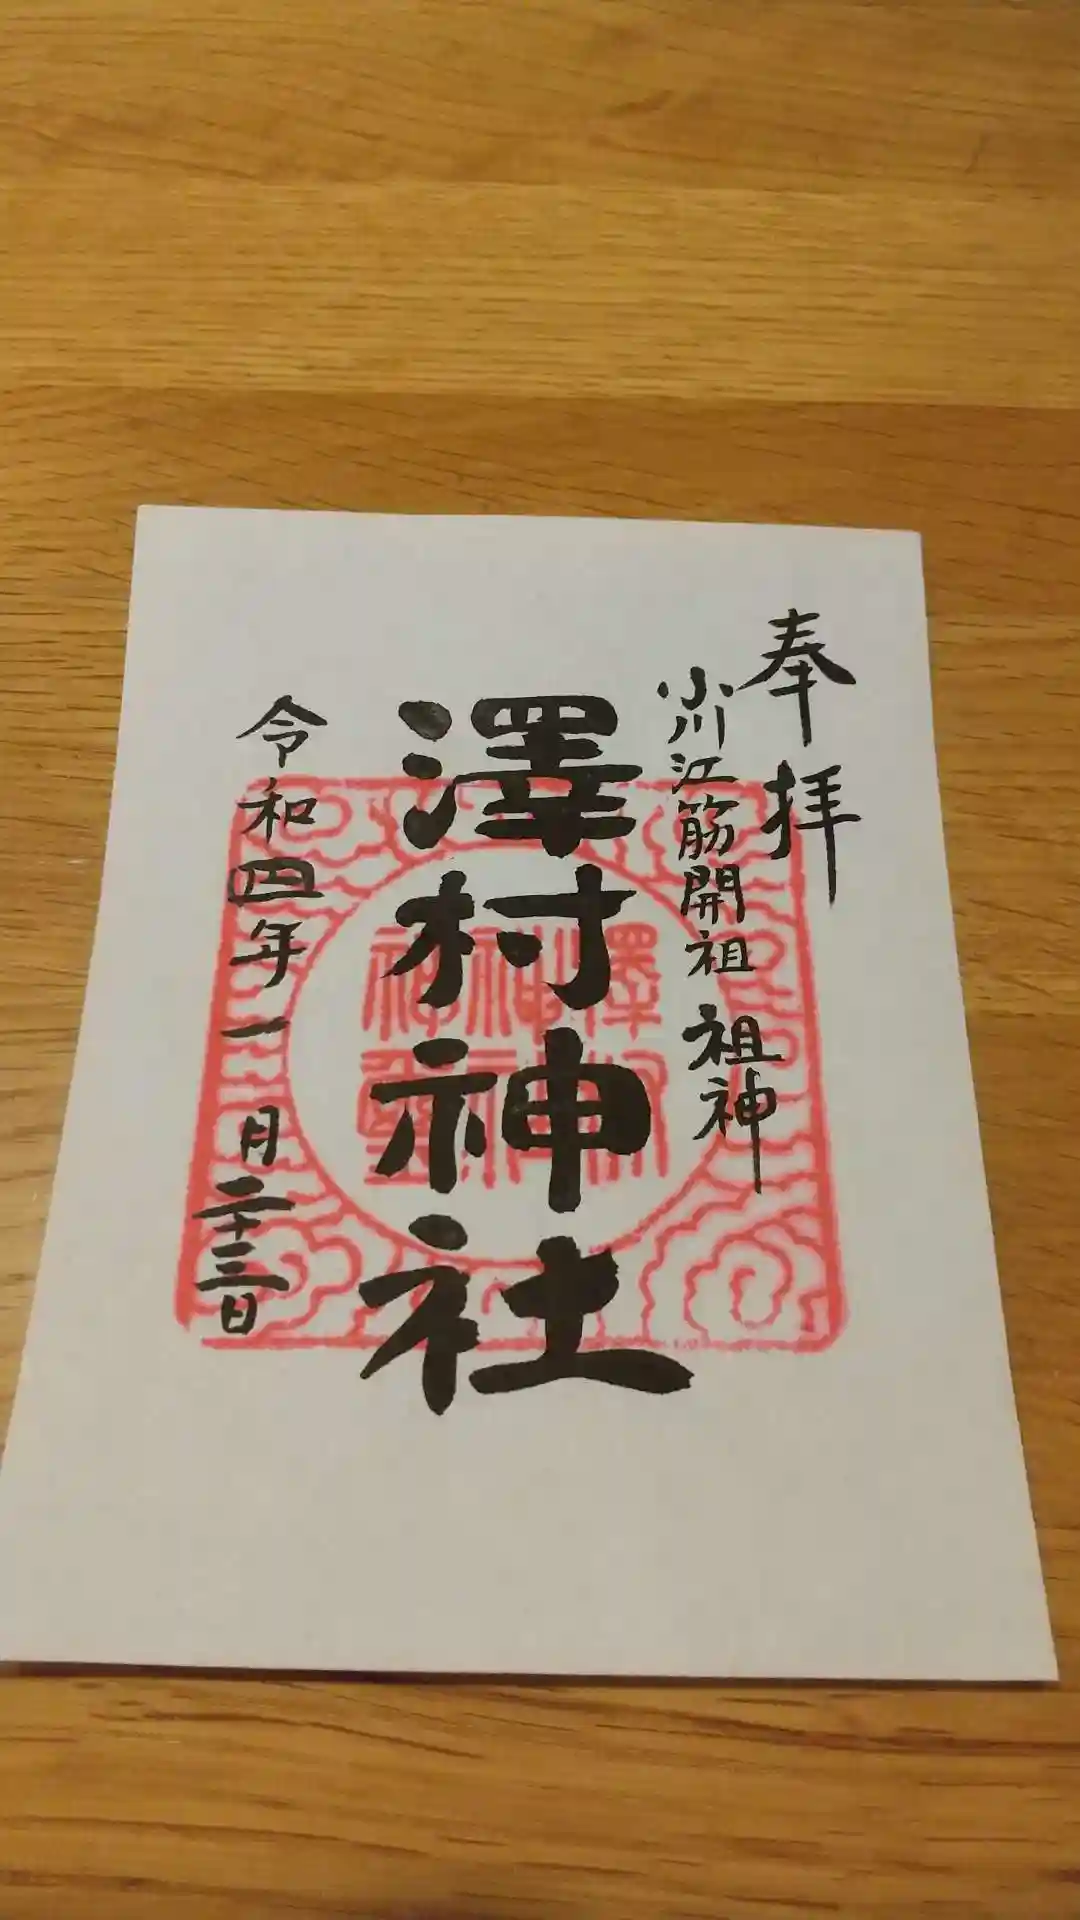 奉拝
小川江筋開祖 祖神
澤村神社
令和四年一月二十三日